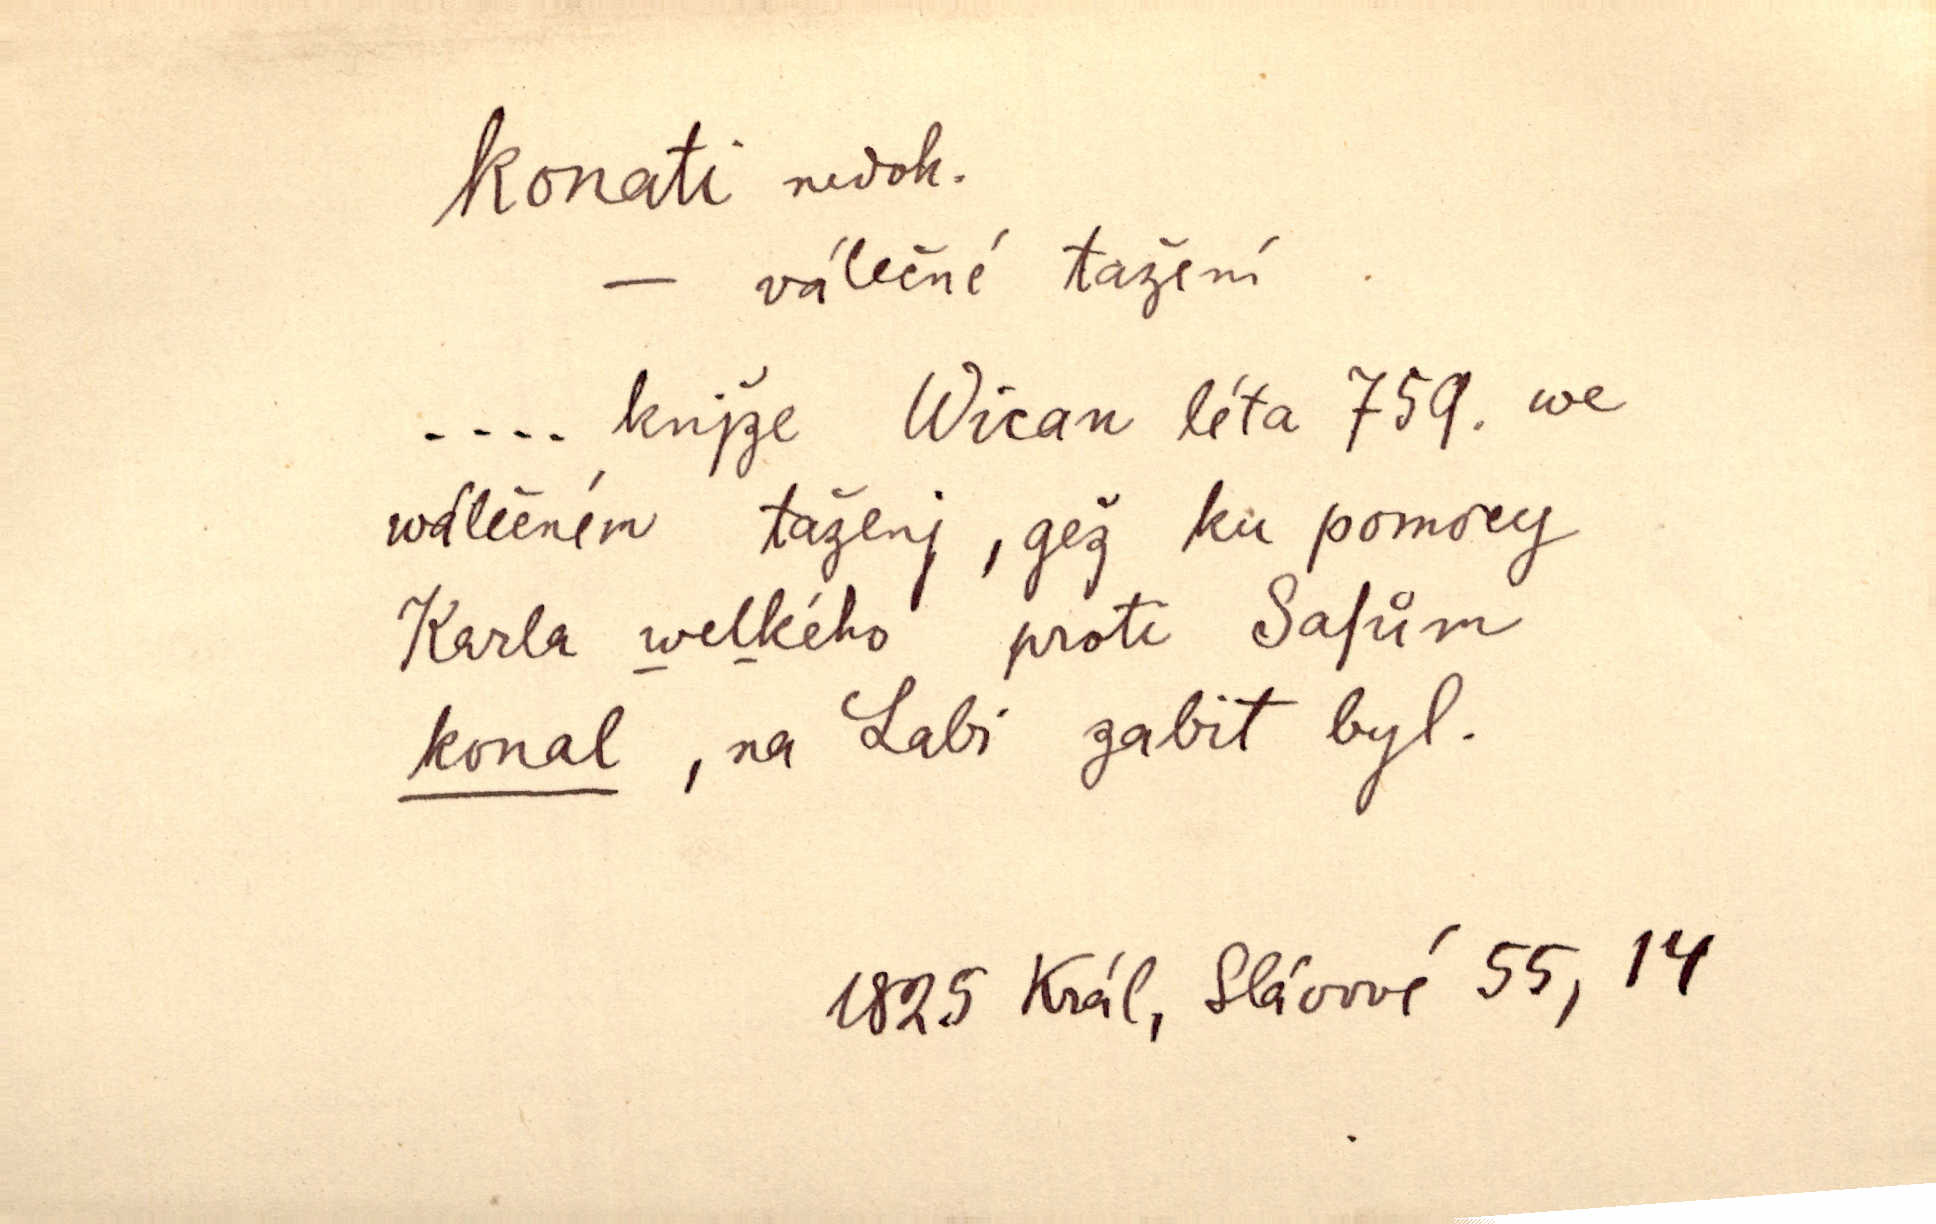 konati nedok.
— válečné tažení
.... knjže Wican léta 759. we
wálečném taženj, gež ku pomocy
Karla welkého proti Saſům
konal, na Labi zabit byl.
1825 Král, Slávové 55, 14